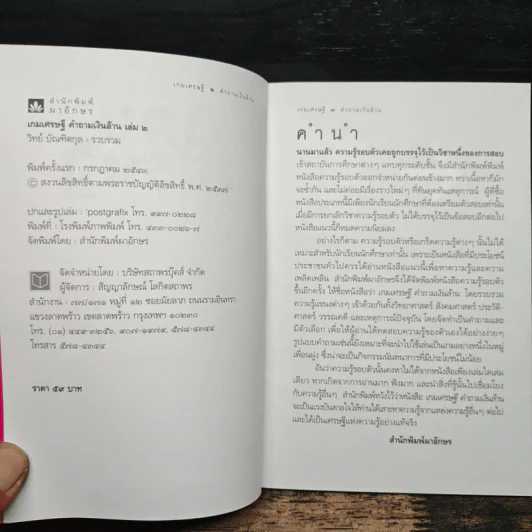 เกมเศรษฐี ๒ คำถามเงินล้าน
สำนักพิมพ์
ผาอักษร
เกมเศรษฐี คำถามเงินล้าน เล่ม ๒
วิทย์ บัณฑิตกุล : รวบรวม
พิมพ์ครั้งแรก : กรกฎาคม ๒๕๔๓
© สงวนลิขสิทธิ์ตามพระราชบัญญัติลิขสิทธิ์ พ.ศ. ๒๕๓๗
ปกและรูปเล่ม : 'postgrafix โทร.
พิมพ์ที่ : โรงพิมพ์ภาพพิมพ์ โทร. ๔๓๓-๐๐๒๖-๗
จัดพิมพ์โดย : สำนักพิมพ์ผาอักษร
จัดจำหน่ายโดย : บริษัทสถาพรบุ๊คส์ จำกัด
ผู้จัดการ : สัญญาลักษณ์ โลกิตสถาพร
สำนักงาน : หมู่ที่ ๑๒ ซอยมัยลาภ ถนนรามอินทรา
แขวงลาดพร้าว เขตลาดพร้าว กรุงเทพฯ ๑๐๒๓๐
โทร. (๐๑)
โทรสาร
ราคา ๕๙ บาท
เกมเศรษฐี ๓ คำถามเงินล้าน
คำนำ
นานมาแล้ว ความรู้รอบตัวเคยถูกบรรจุไว้เป็นวิชาหนึ่งของการสอบ
เข้าสถาบันการศึกษาต่างๆ แทบทุกระดับชั้น จึงมีสำนักพิมพ์พิมพ์
หนังสือความรู้รอบตัวออกจำหน่ายกันค่อนข้างมาก ทว่าเนื้อหาก็มัก
จะซ้ำกัน และไม่ค่อยมีเรื่องราวใหม่ๆ ที่ทันยุคทันเหตุการณ์ ผู้ที่ซื้อ
หนังสือประเภทนี้มีเพียงนักเรียนนักศึกษาที่ต้องเตรียมตัวสอบเท่านั้น
เมื่อมีการยกเลิกวิชาความรู้รอบตัว ไม่ได้บรรจุไว้เป็นข้อสอบอีกต่อไป
หนังสือแนวนี้ก็หมดความนิยมลง
อย่างไรก็ตาม ความรู้รอบตัวหรือเกร็ดความรู้ต่างๆ นั้นไม่ได้
เหมาะสำหรับนักเรียนนักศึกษาเท่านั้น เพราะเป็นหนังสือที่มีประโยชน์
ประชาชนทั่วไปควรได้อ่านหนังสือแนวนี้เพื่อหาความรู้และความ
เพลิดเพลิน สำนักพิมพ์ผาอักษรจึงได้จัดพิมพ์หนังสือความรู้รอบตัว
ขึ้นอีกครั้ง ให้ชื่อหนังสือว่า เกมเศรษฐี คำถามเงินล้าน โดยรวบรวม
ความรู้แขนงต่างๆ เข้าด้วยกันทั้งวิทยาศาสตร์ สังคมศาสตร์ ประวัติ-
ศาสตร์ วรรณคดี และเหตุการณ์ปัจจุบัน โดยจัดทำเป็นคำถามและ
มีตัวเลือก เพื่อให้ผู้อ่านได้ทดสอบความรู้ของตัวเองได้อย่างง่ายๆ
รูปแบบคำถามเช่นนี้ยังเหมาะที่จะนำไปใช้เล่นเป็นเกมอย่างหนึ่งในหมู่
เพื่อนฝูง ซึ่งน่าจะเป็นกิจกรรมนันทนาการที่มีประโยชน์ไม่น้อย
อันว่าความรู้รอบตัวนั้นคงหาไม่ได้จากหนังสือเพียงเล่มใดเล่ม
เดียว หากเกิดจากการอ่านมาก ฟังมาก และนำสิ่งที่รู้นั้นไปเชื่อมโยง
กับความรู้อื่นๆ สำนักพิมพ์หวังไว้ว่าหนังสือ เกมเศรษฐี คำถามเงินล้าน
จะเป็นแรงบันดาลใจให้ท่านได้เสาะหาความรู้จากแหล่งความรู้อื่นๆ ต่อไป
และได้เป็นเศรษฐีแห่งความรู้อย่างแท้จริง
สำนักพิมพ์ผาอักษร